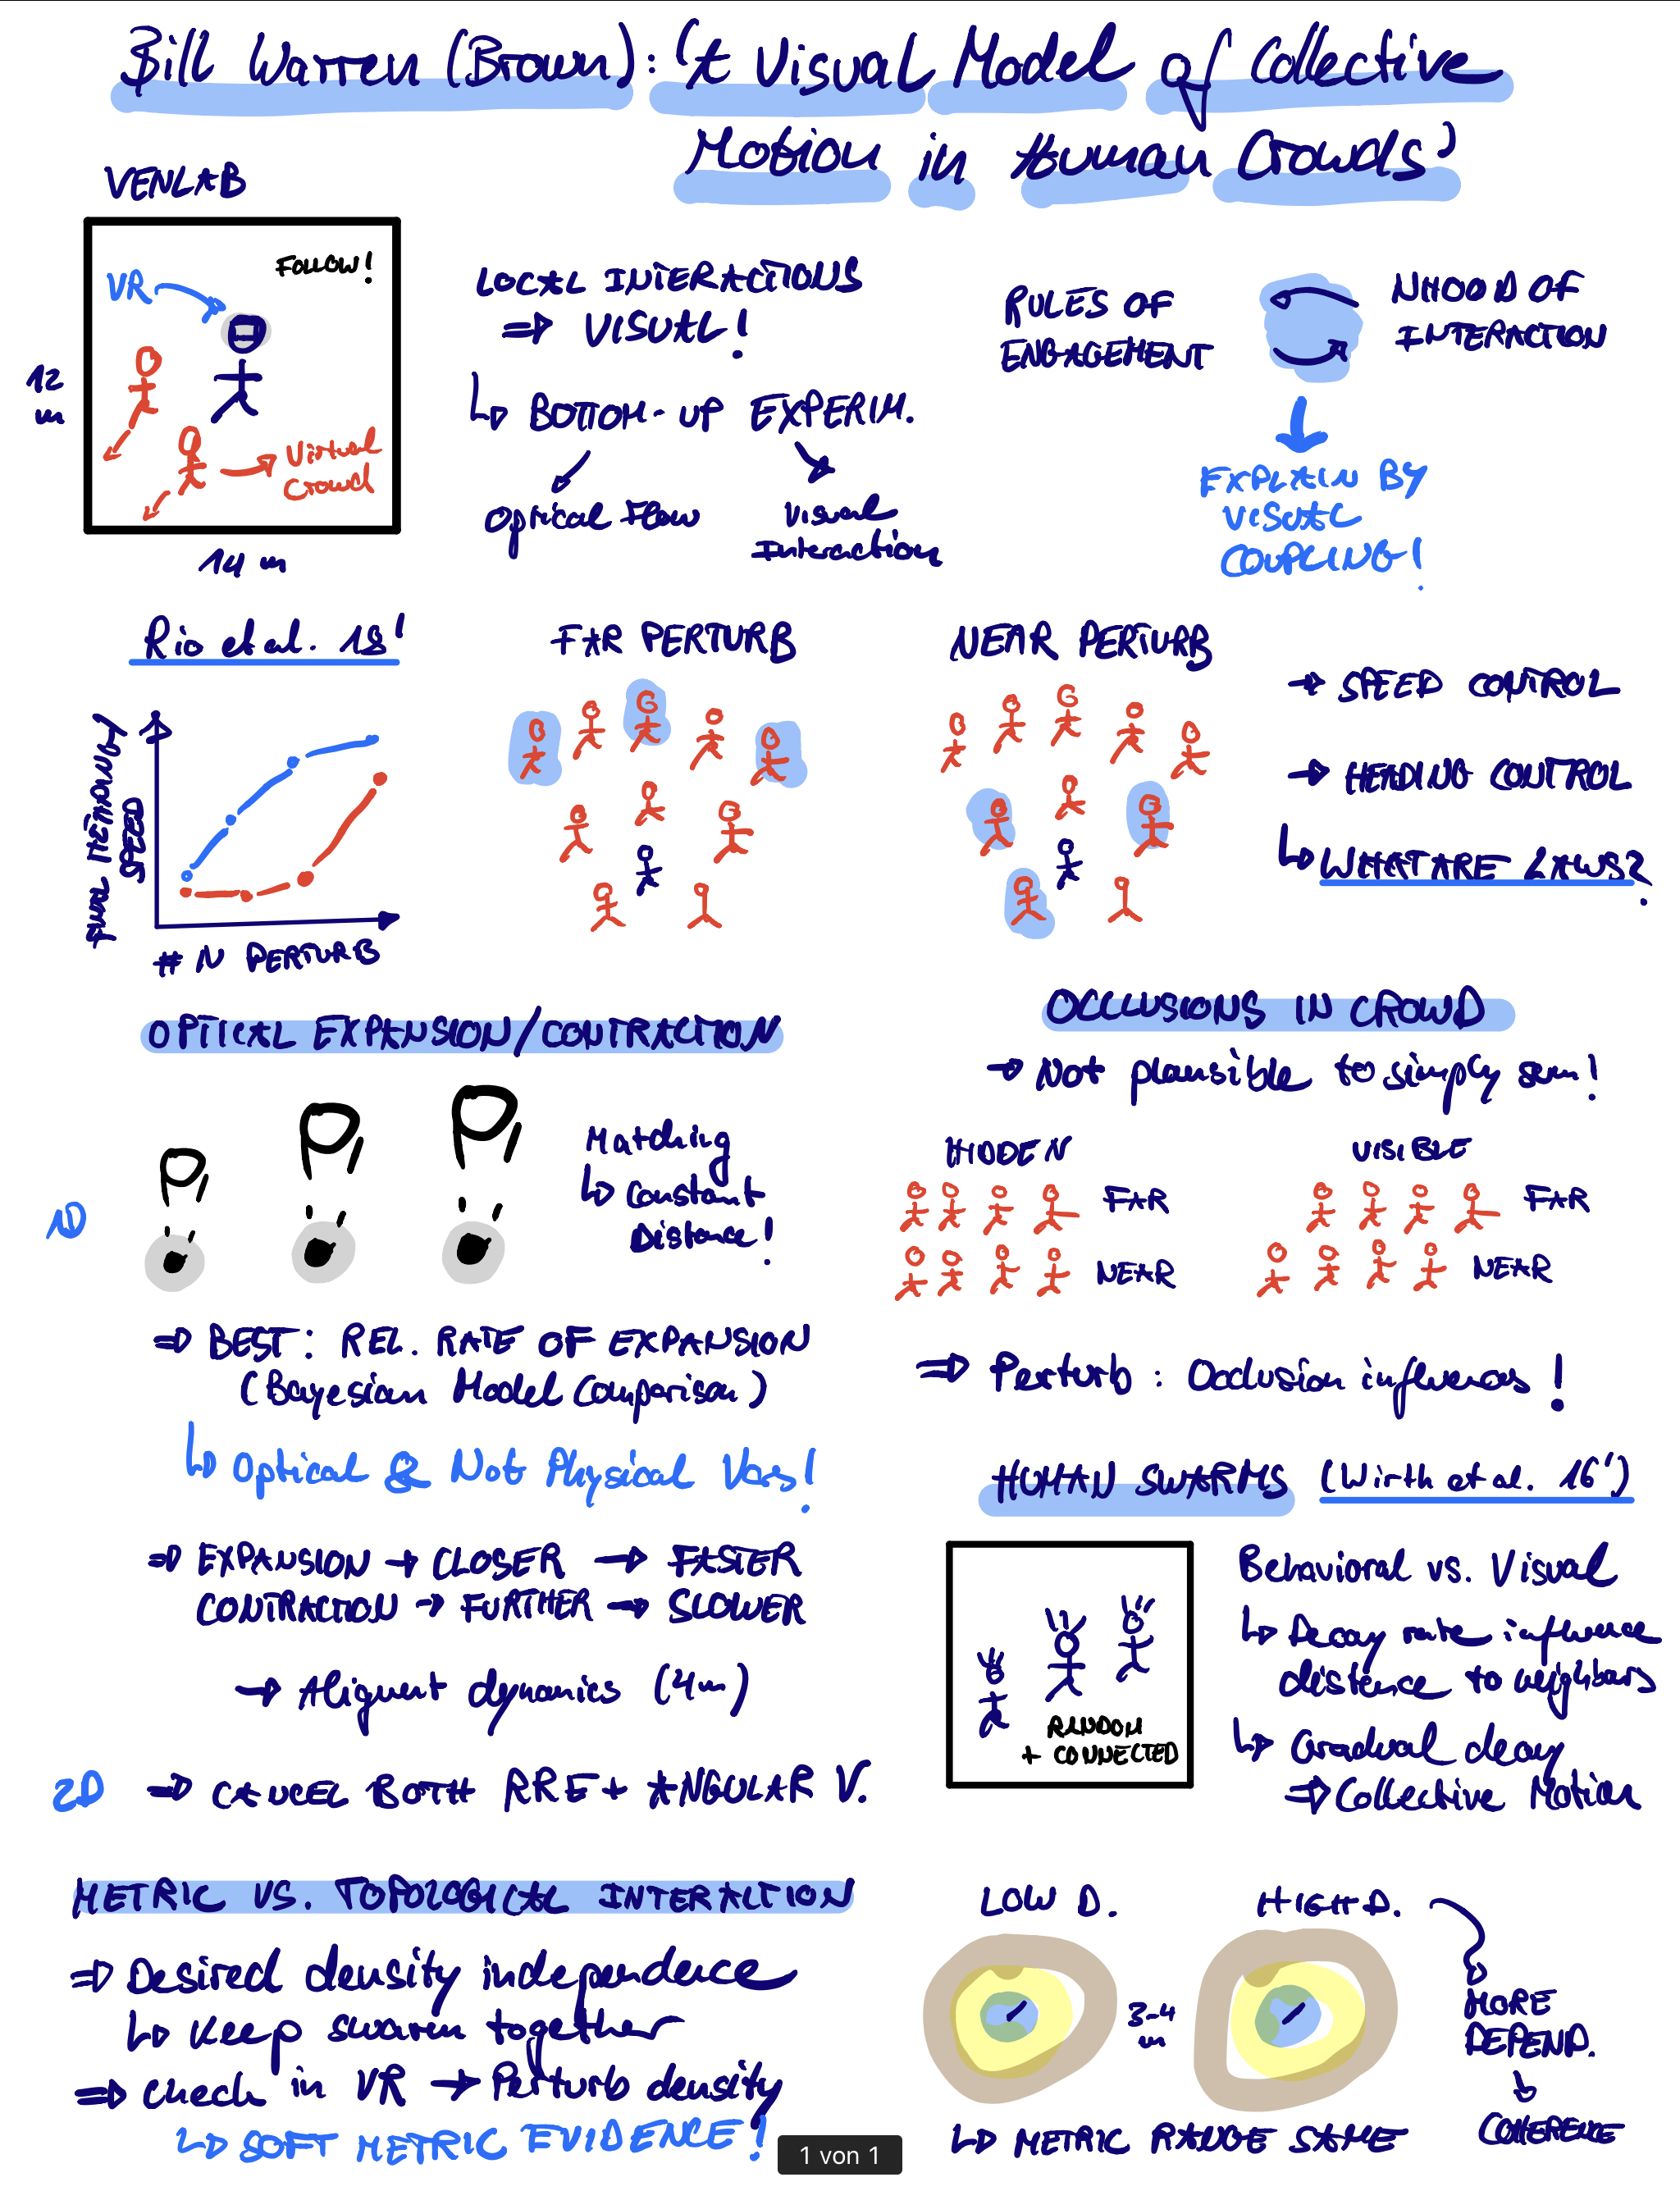 Bill Warren (Brown): 'A Visual Model of Collective
Motion in Human Crowds'
VENLAB
VR
FOLLOW!
12
m
Virtual
Crowd
14 m
LOCAL INTERACTIONS
=> VISUAL!
↳ BOTTOM-UP EXPERIM.
Optical Flow
Visual
Interaction
RULES OF
ENGAGEMENT
NHOOD OF
INTERACTION
EXPLAIN BY
VISUAL
COUPLING!
Rio et al. 18'
FINAL HEADING/
SPEED
# N PERTURB
FAR PERTURB
NEAR PERTURB
→ SPEED CONTROL
→ HEADING CONTROL
↳ WHAT ARE LAWS?
OPTICAL EXPANSION/CONTRACTION
1D
Matching
↳ Constant
Distance!
=> BEST: REL. RATE OF EXPANSION
(Bayesian Model Comparison)
↳ Optical & Not Physical Vars!
=> EXPANSION → CLOSER → FASTER
CONTRACTION → FURTHER → SLOWER
→ Aligment dynamics (4m)
2D => CANCEL BOTH RRE + ANGULAR V.
OCCLUSIONS IN CROWD
→ Not plausible to simply sum!
HIDDEN
VISIBLE
FAR
FAR
NEAR
NEAR
=> Perturb: Occlusion influences!
HUMAN SWARMS (Wirth et al. 16')
RANDOM
+ CONNECTED
Behavioral vs. Visual
↳ Decay rate influence
distance to neighbors
↳ Gradual decay
=> Collective Motion
METRIC VS. TOPOLOGICAL INTERACTION
=> Desired density independence
↳ Keep swarm together
=> Check in VR → Perturb density
↳ SOFT METRIC EVIDENCE!
LOW D.
HIGH D.
3-4
m
MORE
DEPEND.
COHERENCE
↳ METRIC RANGE SAME
1 von 1